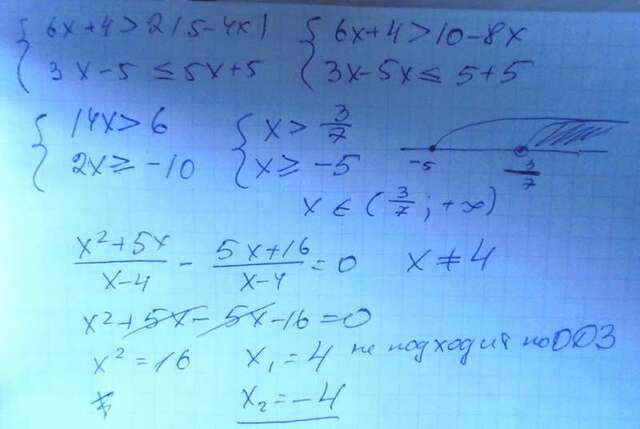 { 6x+4 > 2(5-4x) { 6x+4 > 10-8x
3x-5 ≤ 5x+5 3x-5x ≤ 5+5
{ 14x > 6 { x > 3/7
2x ≥ -10 x ≥ -5 -5 3/7
x ∈ (3/7; +∞)
(x²+5x)/(x-4) - (5x+16)/(x-4) = 0 x ≠ 4
x²+5x-5x-16=0
x²=16 x₁=4 не подходит по ОДЗ
x₂=-4